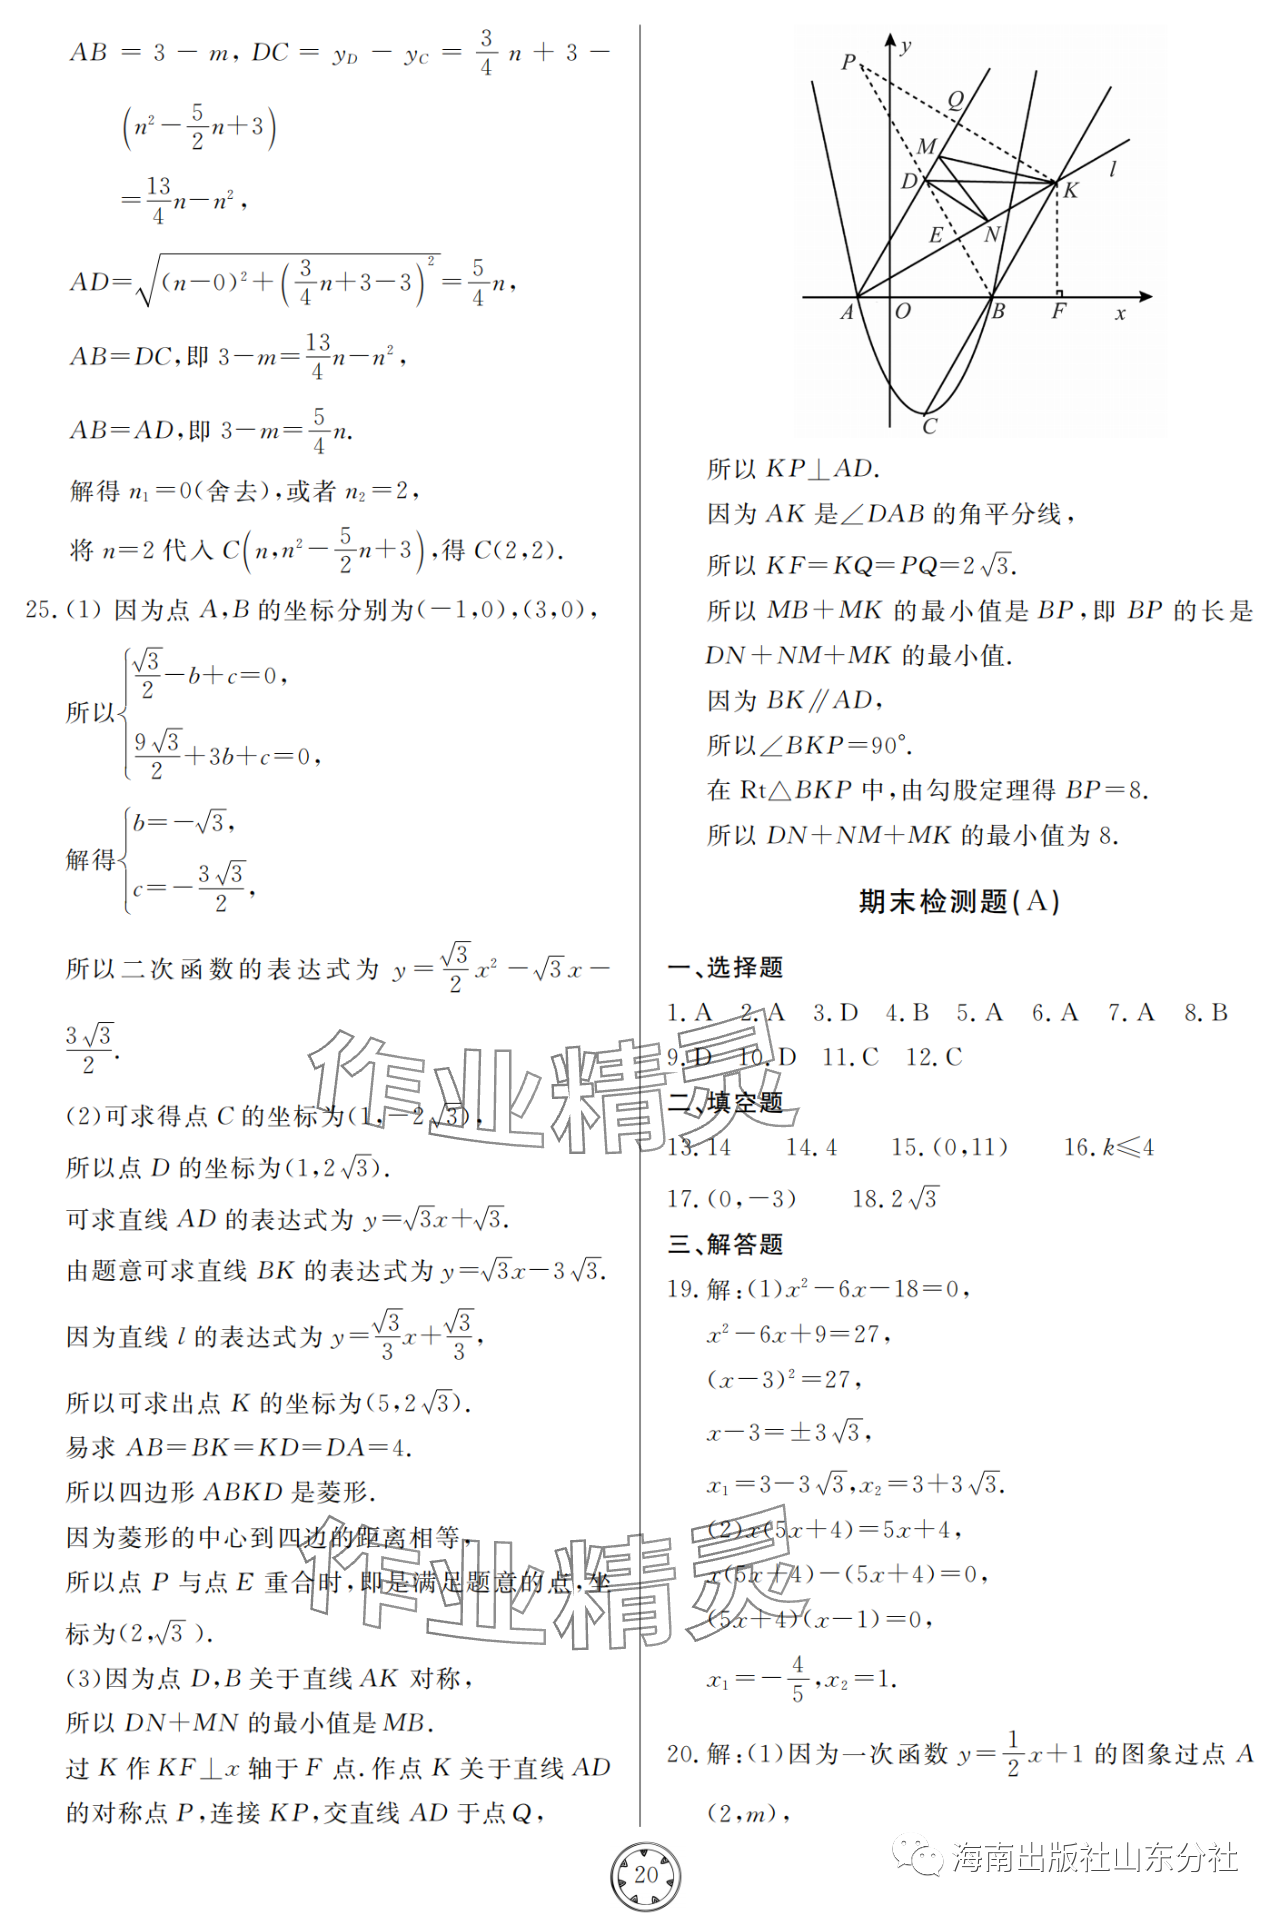 AB = 3 - m, DC = y_D - y_C = 3/4 n + 3 -
(n² - 5/2 n + 3)
= 13/4 n - n²,
AD = √((n-0)² + (3/4 n + 3 - 3)²) = 5/4 n,
AB=DC,即 3-m= 13/4 n-n²,
AB=AD,即 3-m= 5/4 n.
解得 n₁=0(舍去),或者 n₂=2,
将 n=2 代入 C(n, n²- 5/2 n+3),得 C(2,2).
25.(1) 因为点 A,B 的坐标分别为(-1,0),(3,0),
所以{ √3/2 -b+c=0,
9√3/2 +3b+c=0,
解得{ b=-√3,
c=- 3√3/2,
所以二次函数的表达式为 y= √3/2 x² - √3x -
3√3/2.
(2)可求得点 C 的坐标为(1,-2√3),
所以点 D 的坐标为(1,2√3).
可求直线 AD 的表达式为 y=√3x+√3.
由题意可求直线 BK 的表达式为 y=√3x-3√3.
因为直线 l 的表达式为 y= √3/3 x+ √3/3,
所以可求出点 K 的坐标为(5,2√3).
易求 AB=BK=KD=DA=4.
所以四边形 ABKD 是菱形.
因为菱形的中心到四边的距离相等,
所以点 P 与点 E 重合时,即是满足题意的点,坐
标为(2,√3).
(3)因为点 D,B 关于直线 AK 对称,
所以 DN+MN 的最小值是 MB.
过 K 作 KF⊥x 轴于 F 点.作点 K 关于直线 AD
的对称点 P,连接 KP,交直线 AD 于点 Q,
P
y
Q
M
D
K
l
E
N
A
O
B
F
x
C
所以 KP⊥AD.
因为 AK 是∠DAB 的角平分线,
所以 KF=KQ=PQ=2√3.
所以 MB+MK 的最小值是 BP,即 BP 的长是
DN+NM+MK 的最小值.
因为 BK∥AD,
所以∠BKP=90°.
在 Rt△BKP 中,由勾股定理得 BP=8.
所以 DN+NM+MK 的最小值为 8.
期末检测题(A)
一、选择题
1.A 2.A 3.D 4.B 5.A 6.A 7.A 8.B
9.D 10.D 11.C 12.C
二、填空题
13.14 14.4 15.(0,11) 16.k≤4
17.(0,-3) 18.2√3
三、解答题
19.解:(1)x²-6x-18=0,
x²-6x+9=27,
(x-3)²=27,
x-3=±3√3,
x₁=3-3√3,x₂=3+3√3.
(2)x(5x+4)=5x+4,
x(5x+4)-(5x+4)=0,
(5x+4)(x-1)=0,
x₁=- 4/5,x₂=1.
20.解:(1)因为一次函数 y= 1/2 x+1 的图象过点 A
(2,m),
作业精灵
作业精灵
20
海南出版社山东分社